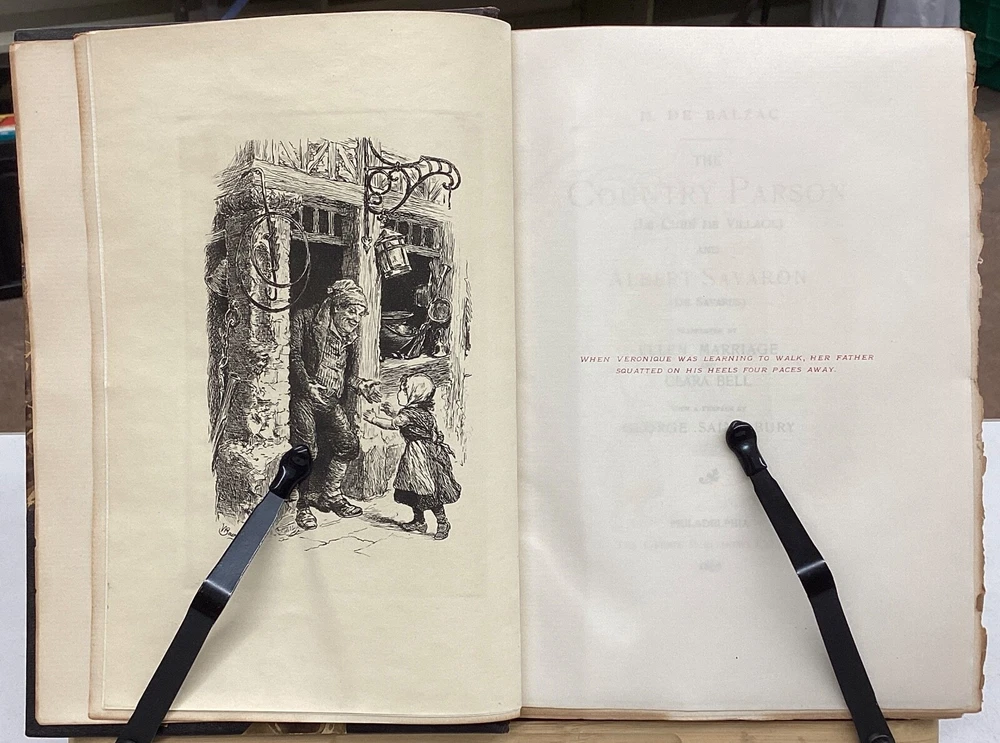 H. DE BALZAC
THE
COUNTRY PARSON
(LE CURÉ DE VILLAGE)
AND
ALBERT SAVARON
(DE SAVARUS)
TRANSLATED BY
ELLEN MARRIAGE
WHEN VERONIQUE WAS LEARNING TO WALK, HER FATHER
SQUATTED ON HIS HEELS FOUR PACES AWAY.
CLARA BELL
WITH A PREFACE BY
GEORGE SAINTSBURY
PHILADELPHIA